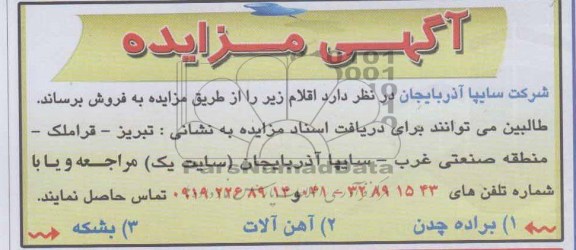 آگهی مزایده
شرکت سایپا آذربایجان در نظر دارد اقلام زیر را از طریق مزایده به فروش برساند.
طالبین می توانند برای دریافت اسناد مزایده به نشانی : تبریز - قراملک -
منطقه صنعتی غرب - سایپا آذربایجان (سایت یک) مراجعه و یا با
شماره تلفن های ۴۳ ۱۵ ۸۹ ۳۲ - ۰۴۱ و ۱۴ ۸۹ ۲۲۶ ۰۹۱۹ تماس حاصل نمایند.
۱) براده چدن ۲) آهن آلات ۳) بشکه
ParsNamadData